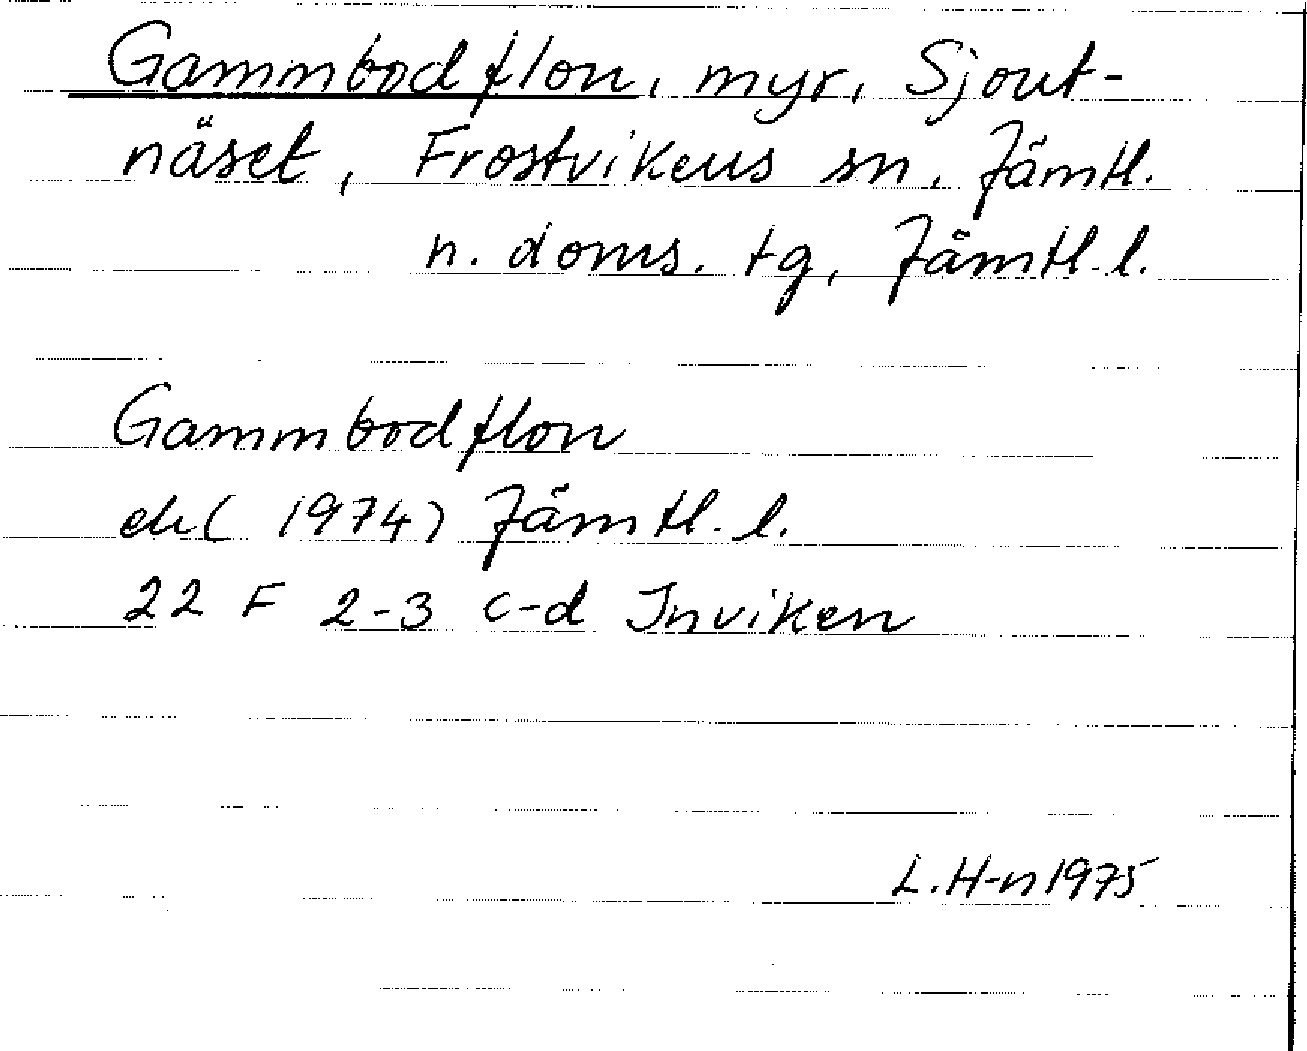 Gammbodflon, myr, Sjout-
näset, Frostvikens sn, Jämtl.
n. doms. tg, Jämtl. l.
Gammbodflon
ek (1974) Jämtl. l.
22 F 2-3 c-d Inviken
L.H-n 1975